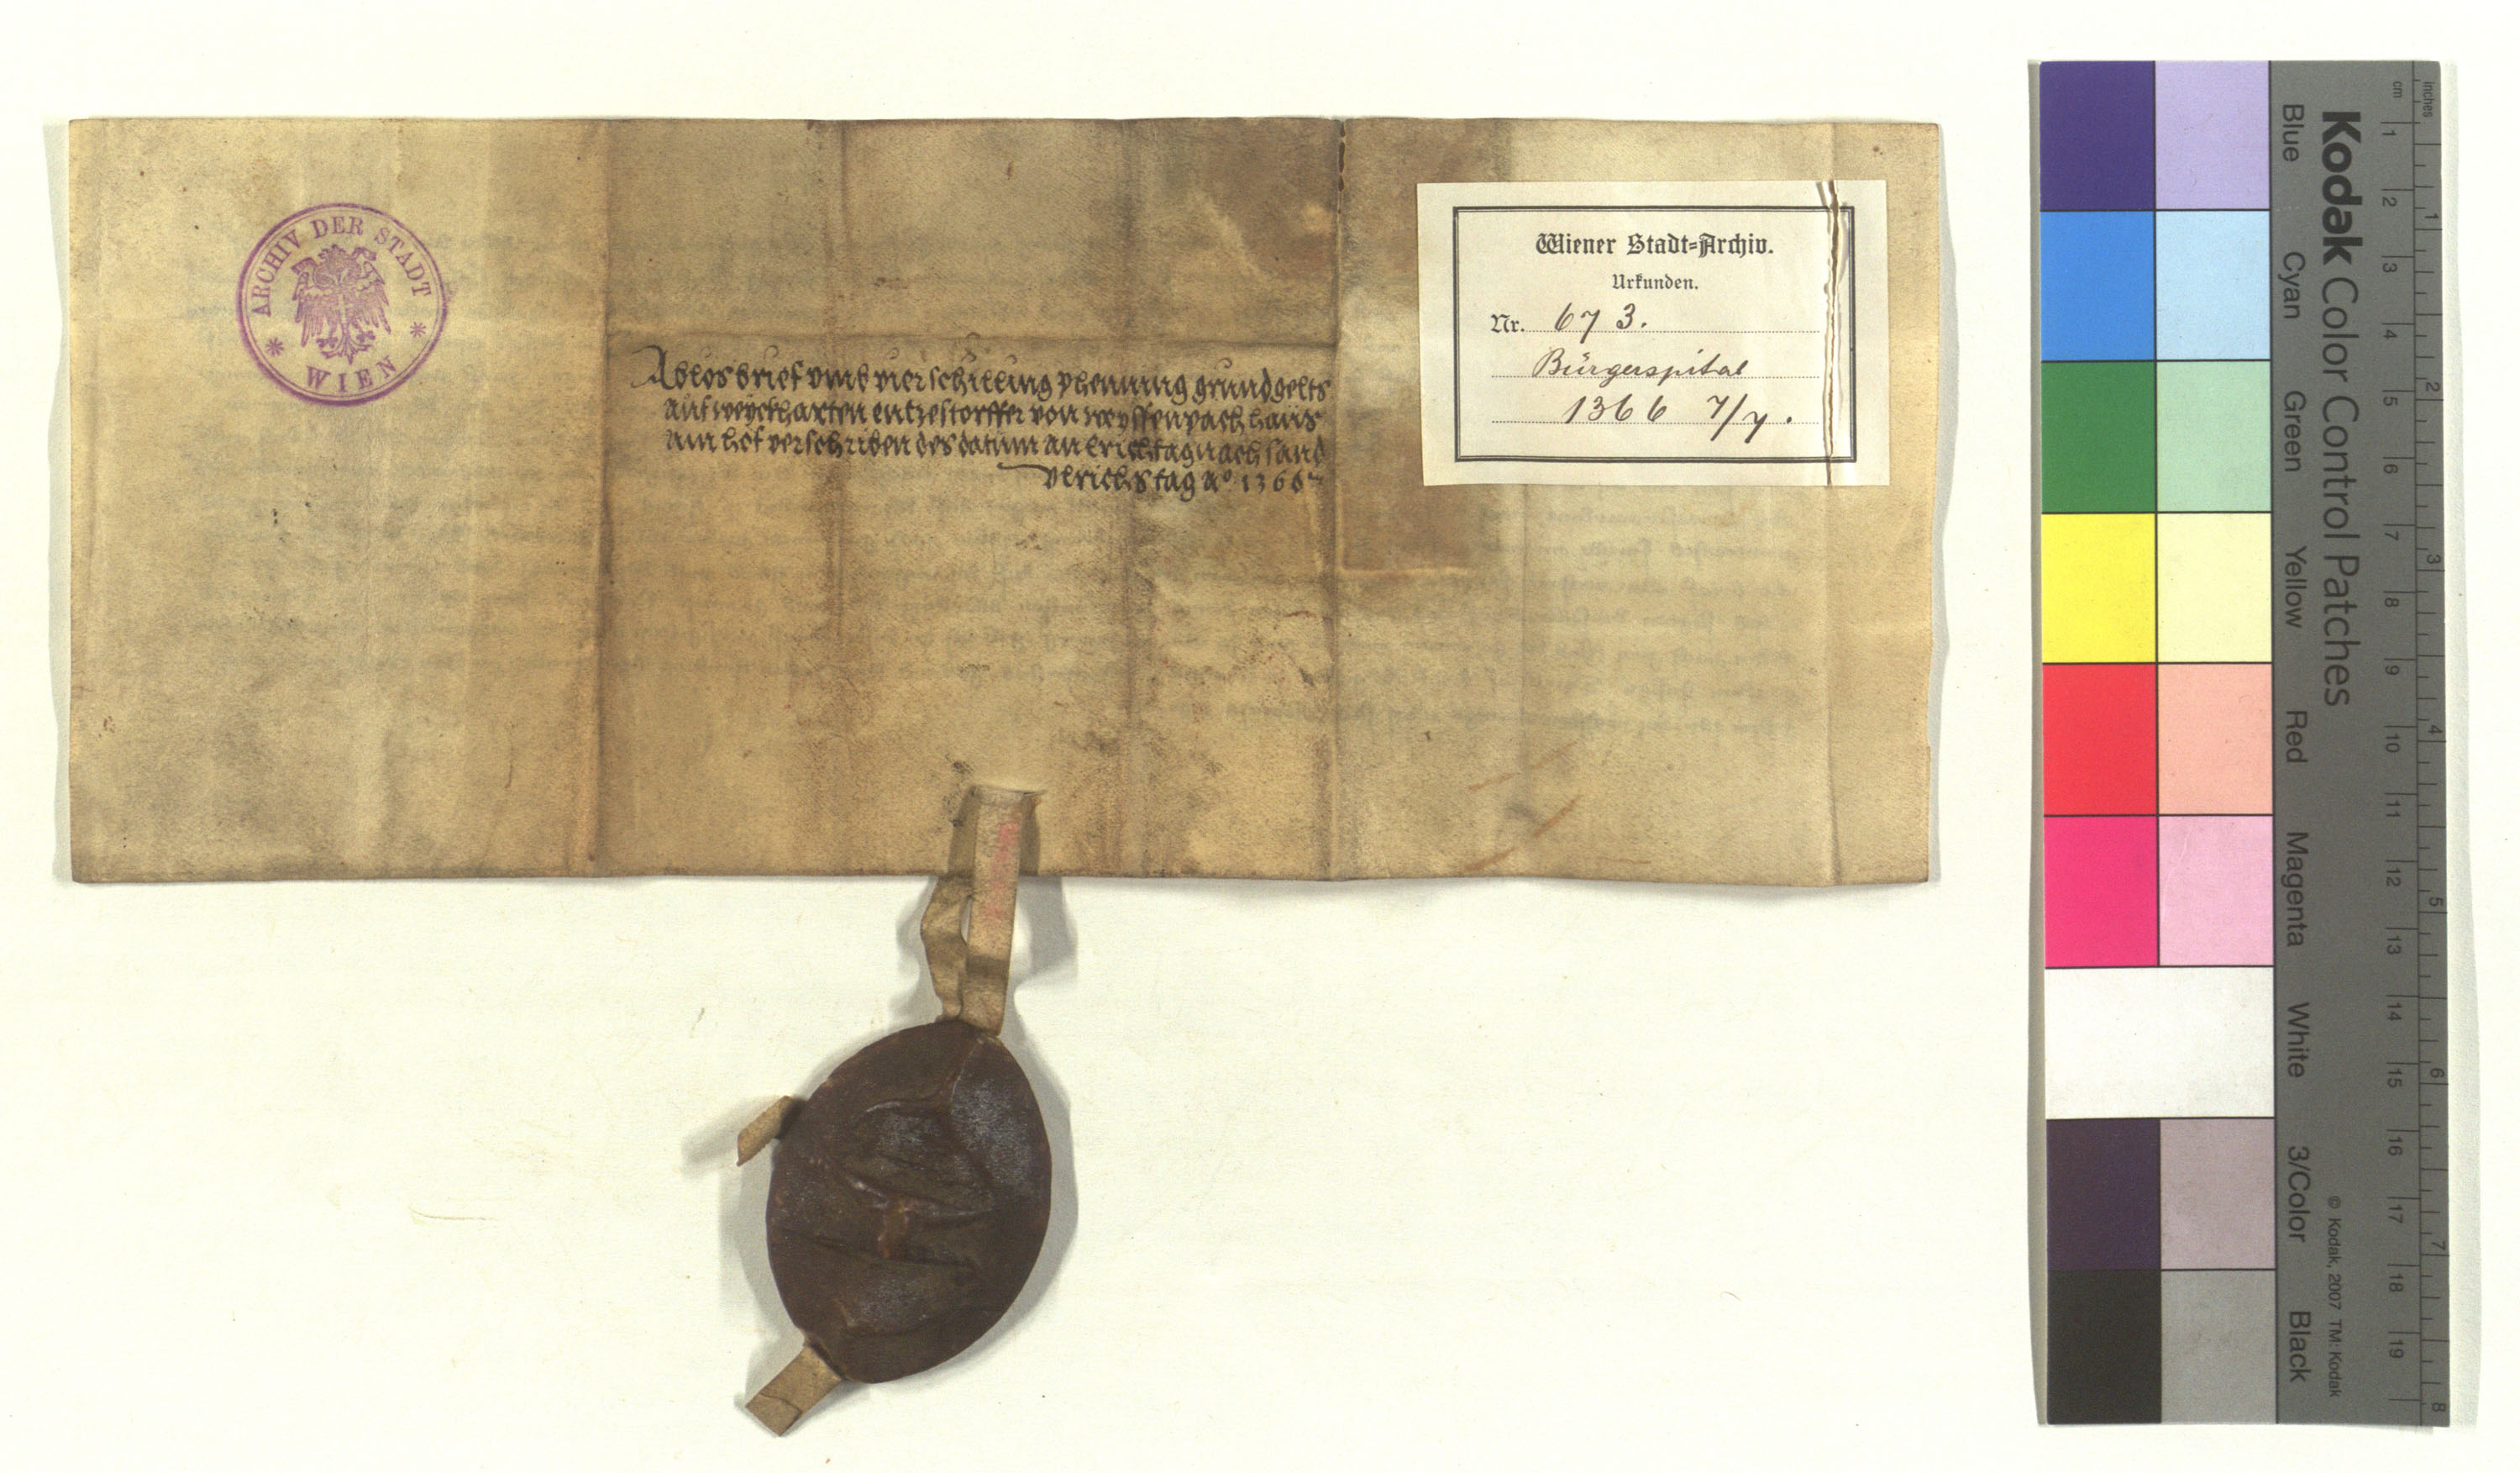 ARCHIV DER STADT
WIEN
Ablosbrief vmb vier schilling phenning grundgelts
auf weyckharten entzestorffer von weyssenpach haus
am hof verschriben des datum an Erichtag nach sand
vlrichs tag Ao 1366
Wiener Stadt-Archiv.
Urkunden.
Nr. 673.
Bürgerspital
1366 7/7.
Kodak Color Control Patches
Blue Cyan Green Yellow Red Magenta White 3/Color Black
© Kodak, 2007 TM: Kodak
cm 1 2 3 4 5 6 7 8 9 10 11 12 13 14 15 16 17 18 19
inches 1 2 3 4 5 6 7 8